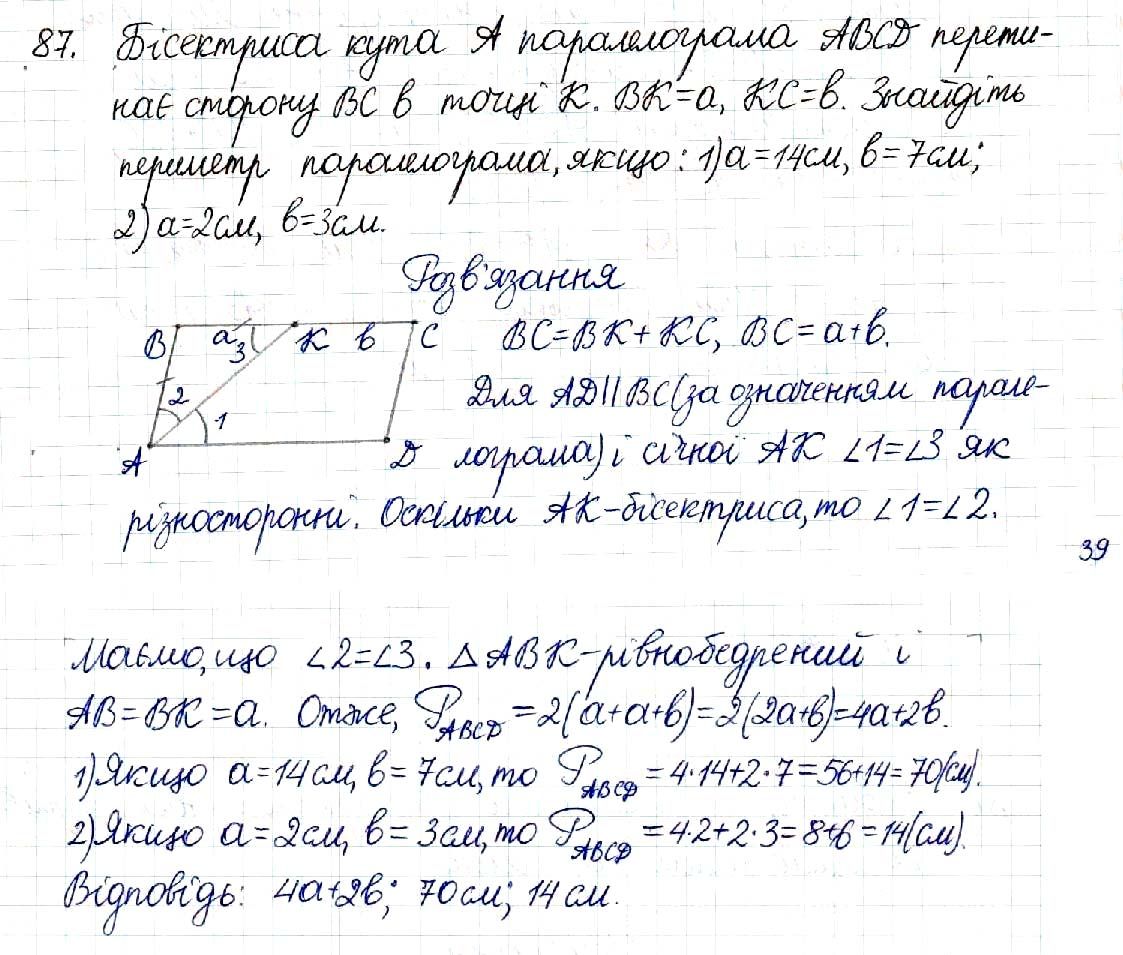 87. Бісектриса кута А паралелограма ABCD перети-
нає сторону BC в точці K. BK=a, KC=b. Знайдіть
периметр паралелограма, якщо: 1) a=14см, b=7см;
2) a=2см, b=3см.
Розв'язання
B a 3 K b C BC=BK+KC, BC=a+b.
2 Для AD||BC (за означенням парале-
1
A D лограма) і січної AK ∠1=∠3 як
різносторонні. Оскільки AK-бісектриса, то ∠1=∠2.
39
Маємо, що ∠2=∠3. △ABK-рівнобедрений і
AB=BK=a. Отже, P ABCD =2(a+a+b)=2(2a+b)=4a+2b.
1) Якщо a=14см, b=7см, то P ABCD =4·14+2·7=56+14=70(см).
2) Якщо a=2см, b=3см, то P ABCD =4·2+2·3=8+6=14(см).
Відповідь: 4a+2b; 70см; 14см.